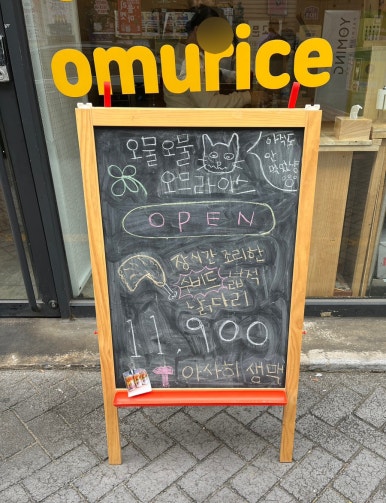 omurice
YOMING
오물오물
오므라이스
아직도
안
먹었냥
OPEN
장시간 조리한
수비드 넓적
닭다리
11,900
아사히 생맥